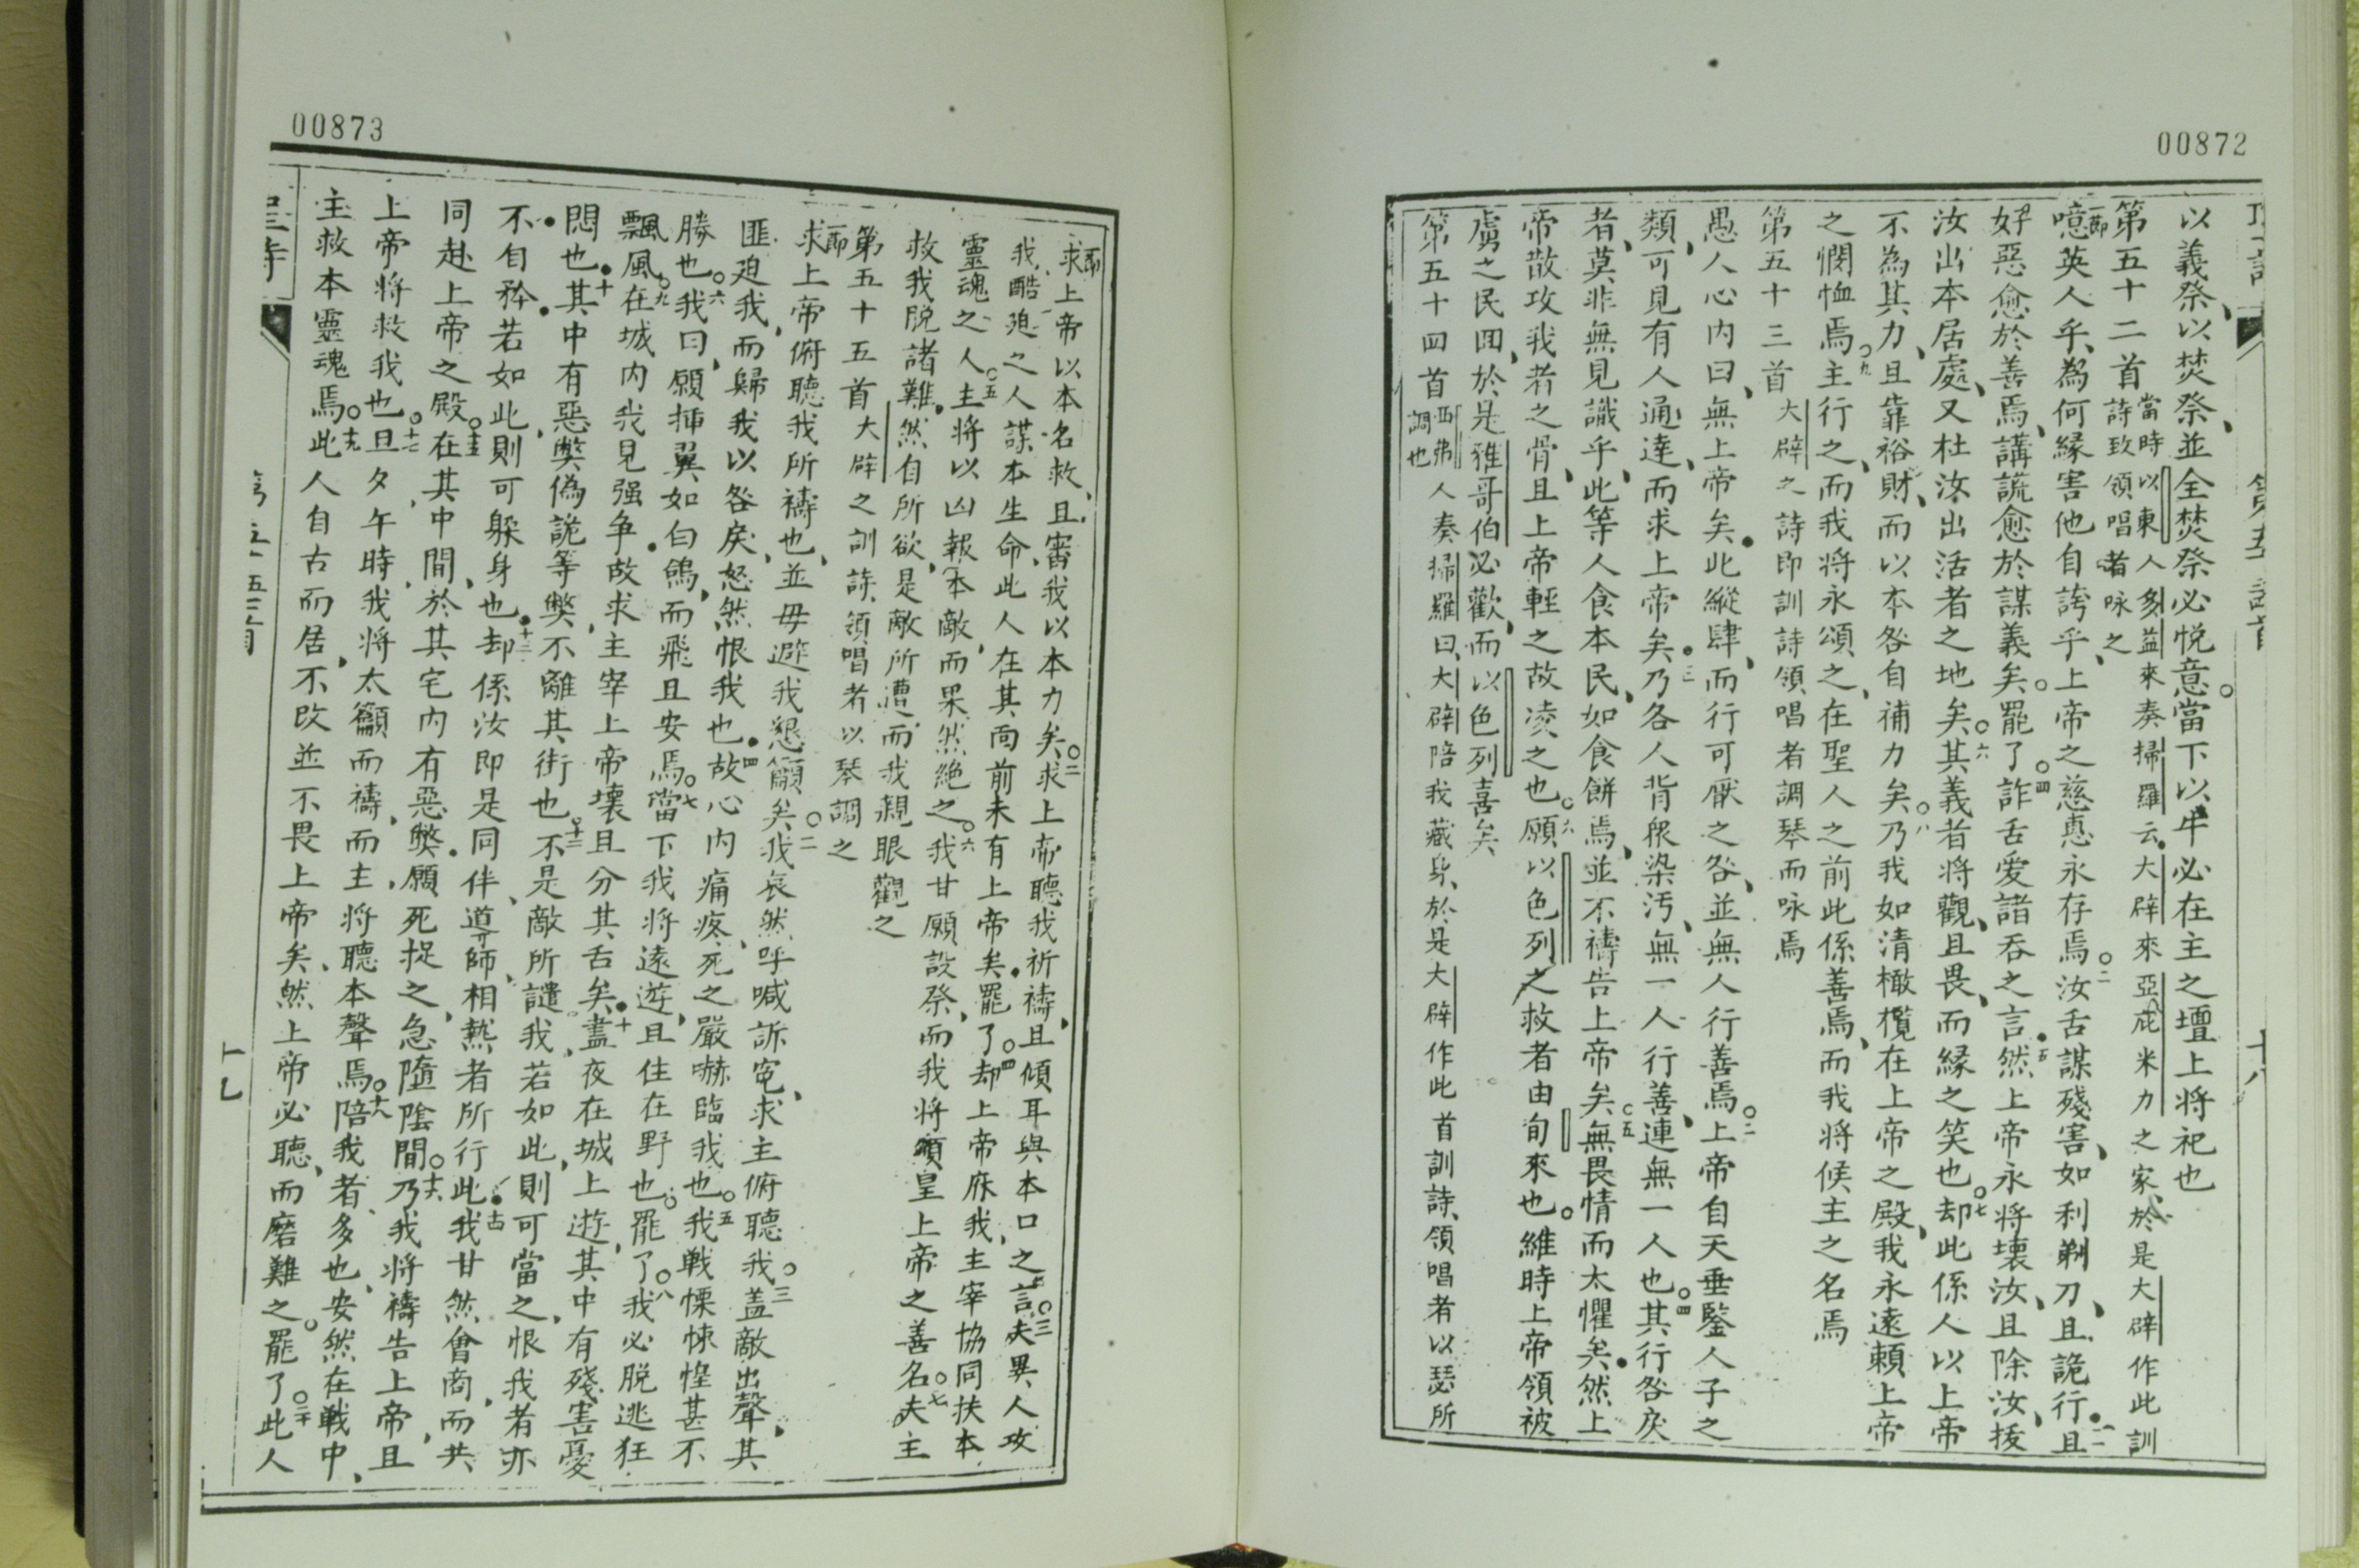 00872
以義祭、以焚祭、並全焚祭、必悅意。當下以牛必在主之壇上將祀也
第五十二首 當時以東人多益來奏掃羅云、大辟來亞庇米力之家、於是大辟作此訓
詩致領唱者咏之
一節 噫英人乎、為何緣害他自誇乎、上帝之慈惠永存焉。二汝舌謀殘害、如利剃刀、且詭行。三且
好惡愈於善焉、講謊愈於謀義矣。罷了。四詐舌愛諸吞之言。五然上帝永將壞汝、且除汝、拔
汝出本居處、又杜汝出活者之地矣。六其義者將觀、且畏、而緣之笑也。七却此係人以上帝
不為其力、且靠裕財、而以本咎自補力矣。八乃我如清橄欖在上帝之殿、我永遠賴上帝
之憫恤焉。九主行之、而我將永頌之、在聖人之前此係善焉、而我將候主之名焉
第五十三首 大辟之詩即訓詩領唱者調琴而咏焉
愚人心內曰、無上帝矣。此縱肆、而行可厭之咎、並無人行善焉。二上帝自天垂鑒人子之
類、可見有人通達、而求上帝矣。三乃各人背衆染污、無一人行善、連無一人也。四其行咎戾
者、莫非無見識乎、此等人食本民、如食餅焉、並不禱告上帝矣。五無畏情而太懼矣。然上
帝散攻我者之骨、且上帝輕之故凌之也。六願以色列之救者由旬來也。維時上帝領被
虜之民囬、於是雅哥伯必歡、而以色列喜矣
第五十四首 西弗人奏掃羅曰、大辟陪我藏身、於是大辟作此首訓詩、領唱者以瑟所
調也
00873
一節 求上帝以本名救、且審我以本力矣。二求上帝聽我祈禱、且傾耳與本口之言。三夫異人攻
我、酷廹之人謀本生命、此人在其靣前未有上帝矣。罷了。四却上帝庥我、主宰協同扶本
靈魂之人。五主將以凶報本敵、而果然絶之。六我甘願設祭、而我將頌皇上帝之善名。七夫主
救我脱諸難、然自所欲、是敵所遭、而我親眼觀之
第五十五首 大辟之訓詩、領唱者以琴調之
一節 求上帝俯聽我所禱也、並毋避我懇籲矣。二我哀然呼喊訴寃、求主俯聽我。三盖敵出聲、其
匪廹我、而歸我以咎戾、怒然恨我也。四故心內痛疼、死之嚴嚇臨我也。五我戰慄悚惶甚不
勝也。六我曰、願挿翼如白鴿、而飛且安焉。七當下我將遠遊、且住在野也。罷了。八我必脱逃狂
飄風。九在城內我見强争、故求主宰上帝壞且分其舌矣。十晝夜在城上遊、其中有殘害憂
悶也。十其中有惡獘偽詭等獘、不離其街也。十二不是敵所譴我、若如此、則可當之、恨我者亦
不自矜、若如此、則可躱身也。十三却係汝即是同伴、導師相熱者所行此。十四我甘然會商、而共
同赴上帝之殿。十五在其中間、於其宅內有惡獘、願死捉之、急隨陰間。十六乃我將禱告上帝、且
上帝將救我也。十七旦夕午時、我將太籲而禱、而主將聽本聲焉。十八陪我者多也、安然在戰中、
主救本靈魂焉。十九此人自古而居、不改並不畏上帝矣、然上帝必聽、而磨難之。罷了。二十此人
聖詩
第五十五首
十九